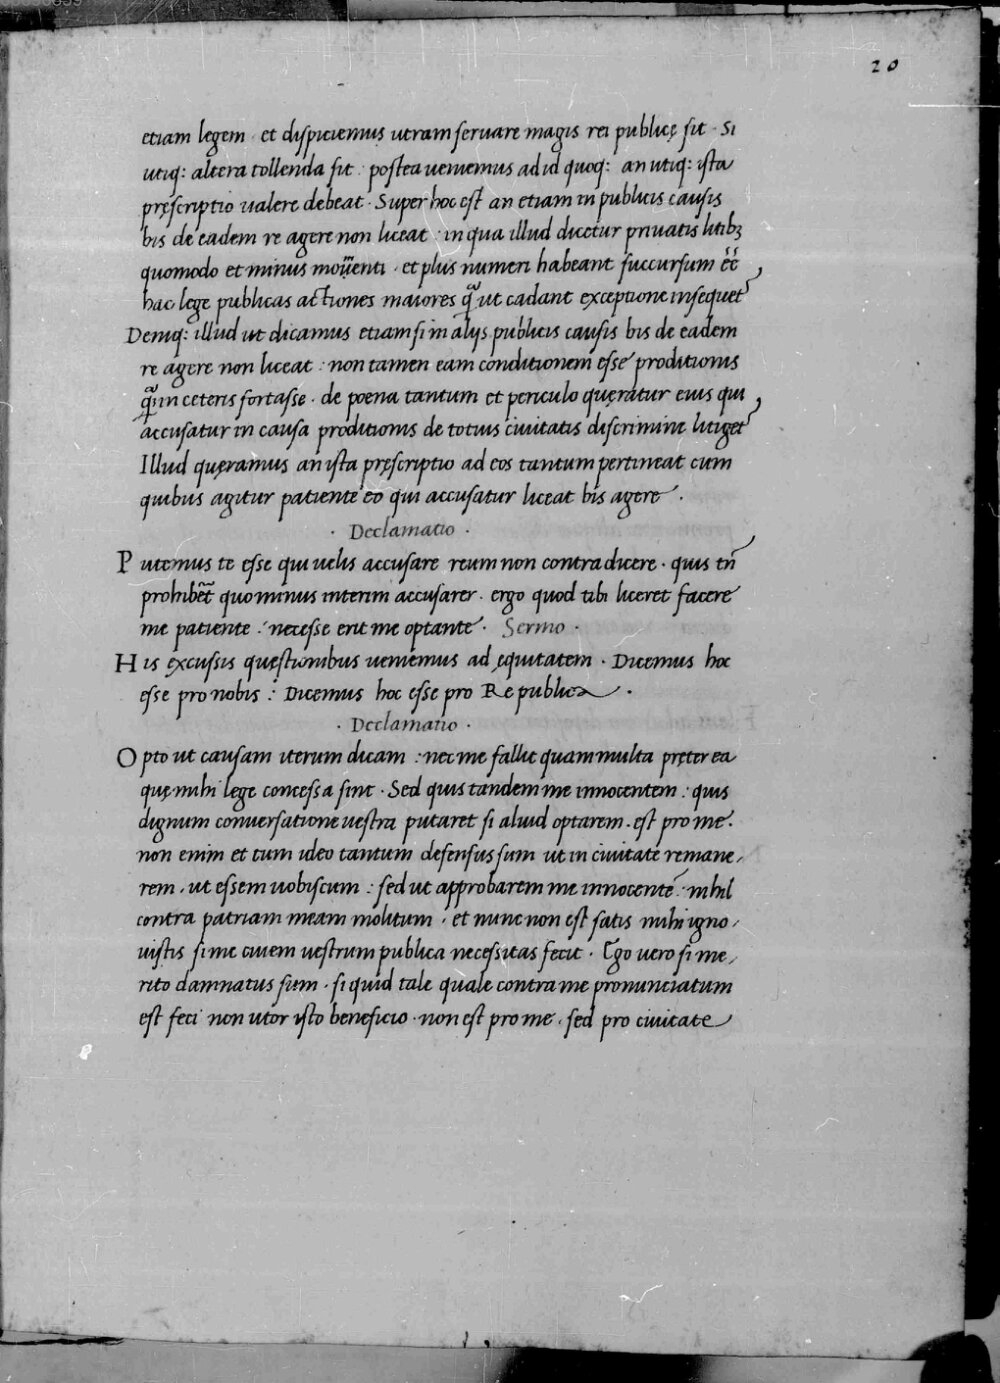 20
etiam legem · et dispiciemus utram seruare magis rei publicę sit · Si
utiq: altera tollenda sit · postea ueniemus ad id quoq: an utiq: ista
pręscriptio ualere debeat · Super hoc est an etiam in publicis causis
bis de eadem re agere non liceat : in qua illud dicetur priuatis litibꝫ
quomodo et minus mouenti · et plus numeri habeant succursum eē
hac lege publicas actiones maiores qͣ ut cadant exceptione insequet᾽
Deniq: illud ut dicamus etiam si in alijs publicis causis bis de eadem
re agere non liceat : non tamen eam conditionem esse proditionis
qͣ in ceteris fortasse · de poena tantum et periculo quęratur eius qui
accusatur in causa proditionis de totius ciuitatis discrimine litiget᾽
Illud quęramus an ista pręscriptio ad eos tantum pertineat cum
quibus agitur patiente eo qui accusatur liceat bis agere ·
· Declamatio ·
Putemus te esse qui uelis accusare reum non contradicere · quis tn̄
prohibēt quominus interim accusarer · ergo quod tibi liceret facere
me patiente : necesse erit me optante · Sermo ·
His excussis quęstionibus ueniemus ad ęquitatem · Dicemus hoc
esse pro nobis : Dicemus hoc esse pro Re publica ·
· Declamatio ·
Opto ut causam iterum dicam : nec me fallit quam multa pręterea
quę mihi lege concessa sint · Sed quis tandem me innocentem : quis
dignum conuersatione uestra putaret si aliud optarem · est pro me ·
non enim et tum ideo tantum defensus sum ut in ciuitate remane,
rem · ut essem uobiscum : sed ut approbarem me innocentē · nihil
contra patriam meam molitum · et nunc non est satis mihi igno,
uistis si me ciuem uestrum publica necessitas fecit · Ego uero si me,
rito damnatus sum · si quid tale quale contra me pronunciatum
est feci non utor isto beneficio · non est pro me · sed pro ciuitate